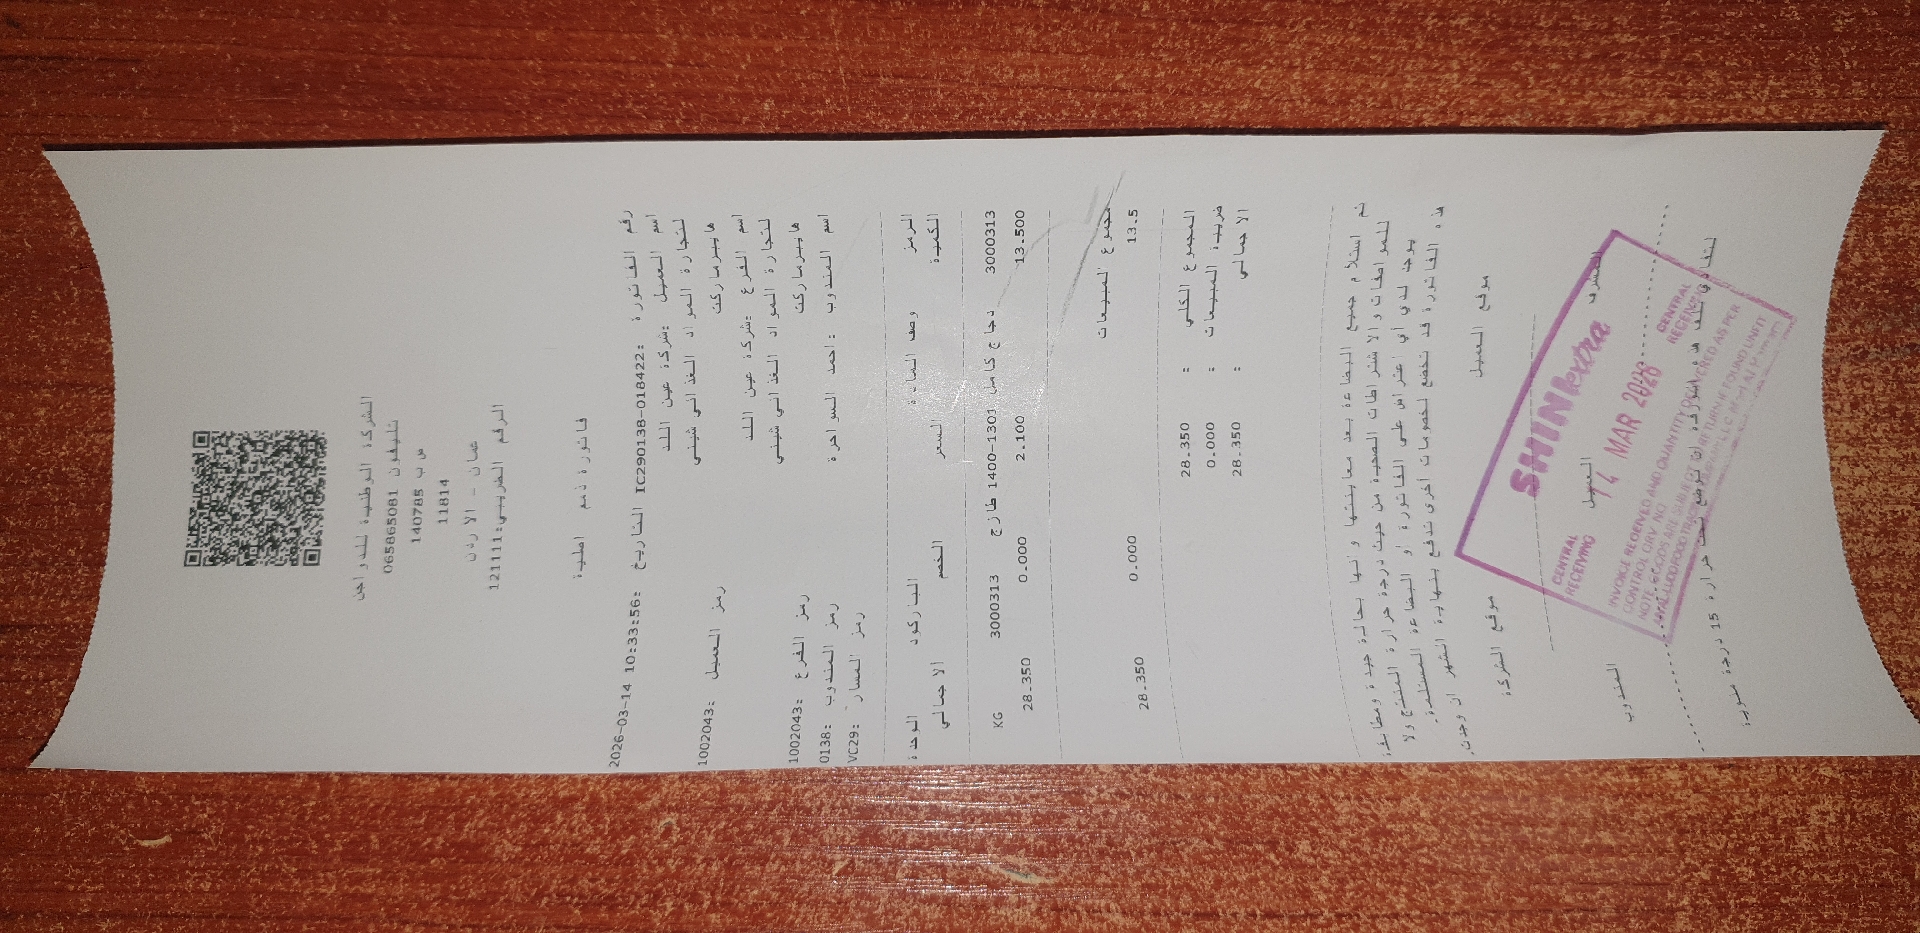 الشركة الوطنية للدواجن
تليفون 065865081
ص ب 140785
11814
عمان - الاردن
الرقم الضريبي:121111
فاتورة ذمم اصلية
رقم الفاتورة :IC290138-018422 التاريخ :2026-03-14 10:33:56
اسم العميل :شركة عين اللد
للتجارة المواد الغذائي شيني
هايبرماركت رمز العميل :1002043
اسم الفرع :شركة عين اللد
للتجارة المواد الغذائي شيني
هايبرماركت رمز الفرع :1002043
اسم المندوب :احمد السواحرة رمز المندوب :0138
رمز المسار :VC29
الرمز وصف المادة الباركود الوحدة
الكمية السعر الخصم الاجمالي
3000313 دجاج كامل 1301-1400 طازج 3000313 KG
13.500 2.100 0.000 28.350
مجموع المبيعات
13.5 0.000 28.350
المجموع الكلي : 28.350
ضريبة المبيعات : 0.000
الاجمالي : 28.350
تم استلام جميع البضاعة بعد معاينتها و انها بحالة جيدة ومطابقة
للمواصفات و الاشتراطات الصحية من حيث درجة حرارة المنتج ولا
يوجد لدي أي اعتراض على الفاتورة او البضاعة المستلمة.
هذه الفاتورة قد تخضع لخصومات أخرى تدفع بنهاية الشهر ان وجدت.
موقع العميل موقع الشركة
العميل المندوب
SHINI extra
CENTRAL RECEIVING
14 MAR 2026
CENTRAL RECEIVING
INVOICE RECEIVED AND QUANTITY DELIVERED AS PER
CONTROL GRV NO
NOTE: GOODS ARE SUBJECT TO RETURN IF FOUND UNFIT
حرارة 15 درجة مئوية